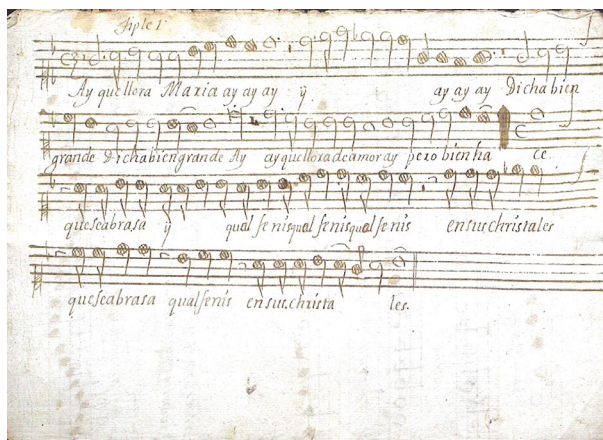 Tiple 1
Ay que llora Maria ay ay ay ij ay ay ay Dicha bien
grande dicha bien grande Ay ay que llora de amor ay pero bien ha ce
que se abrasa ij qual fenis qual fenis qual fenis en sus christales
que se abrasa qual fenis en sus christa les.